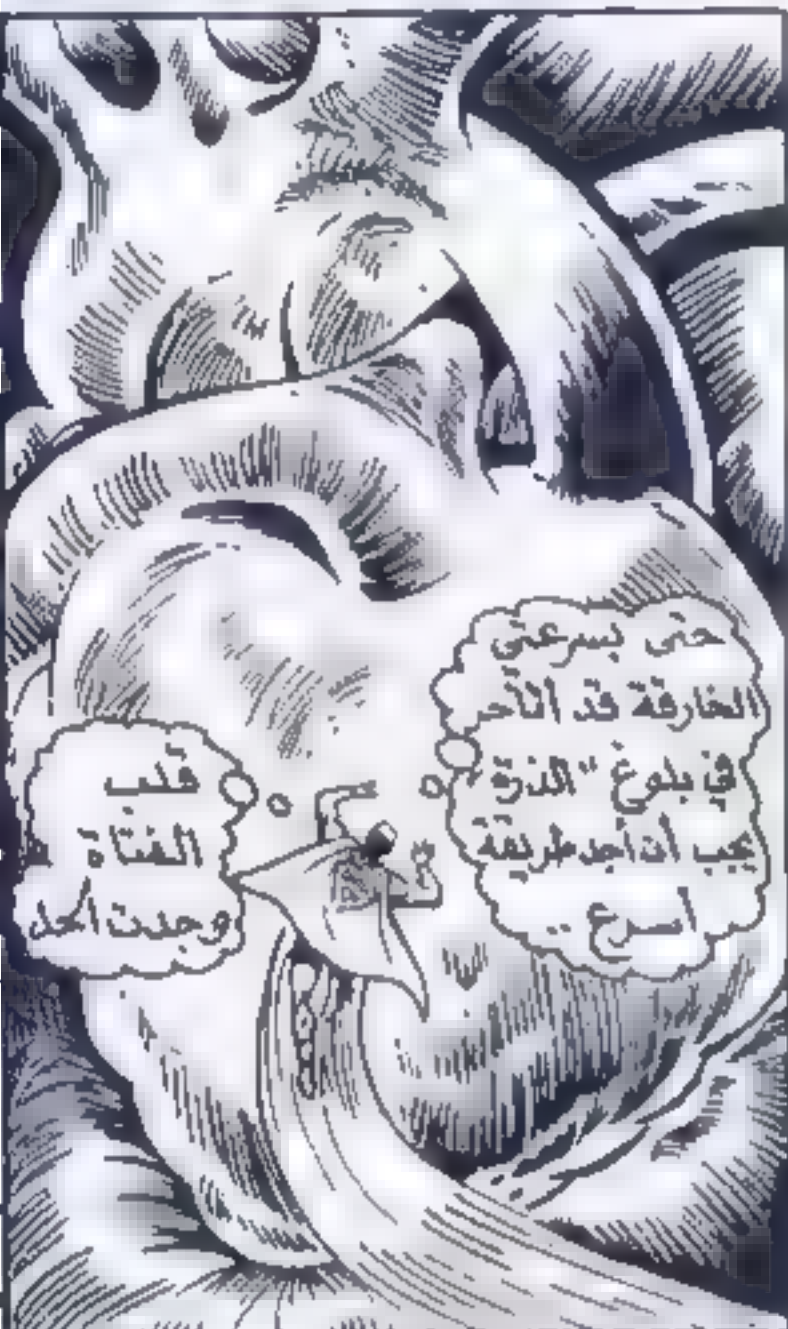 حتى بسرعتي
الخارقة قد أتأخر
في بلوغ "الذرّة"
يجب أن أجد طريقة
أسرع ..
قلب
الفتاة
وجدت الحل